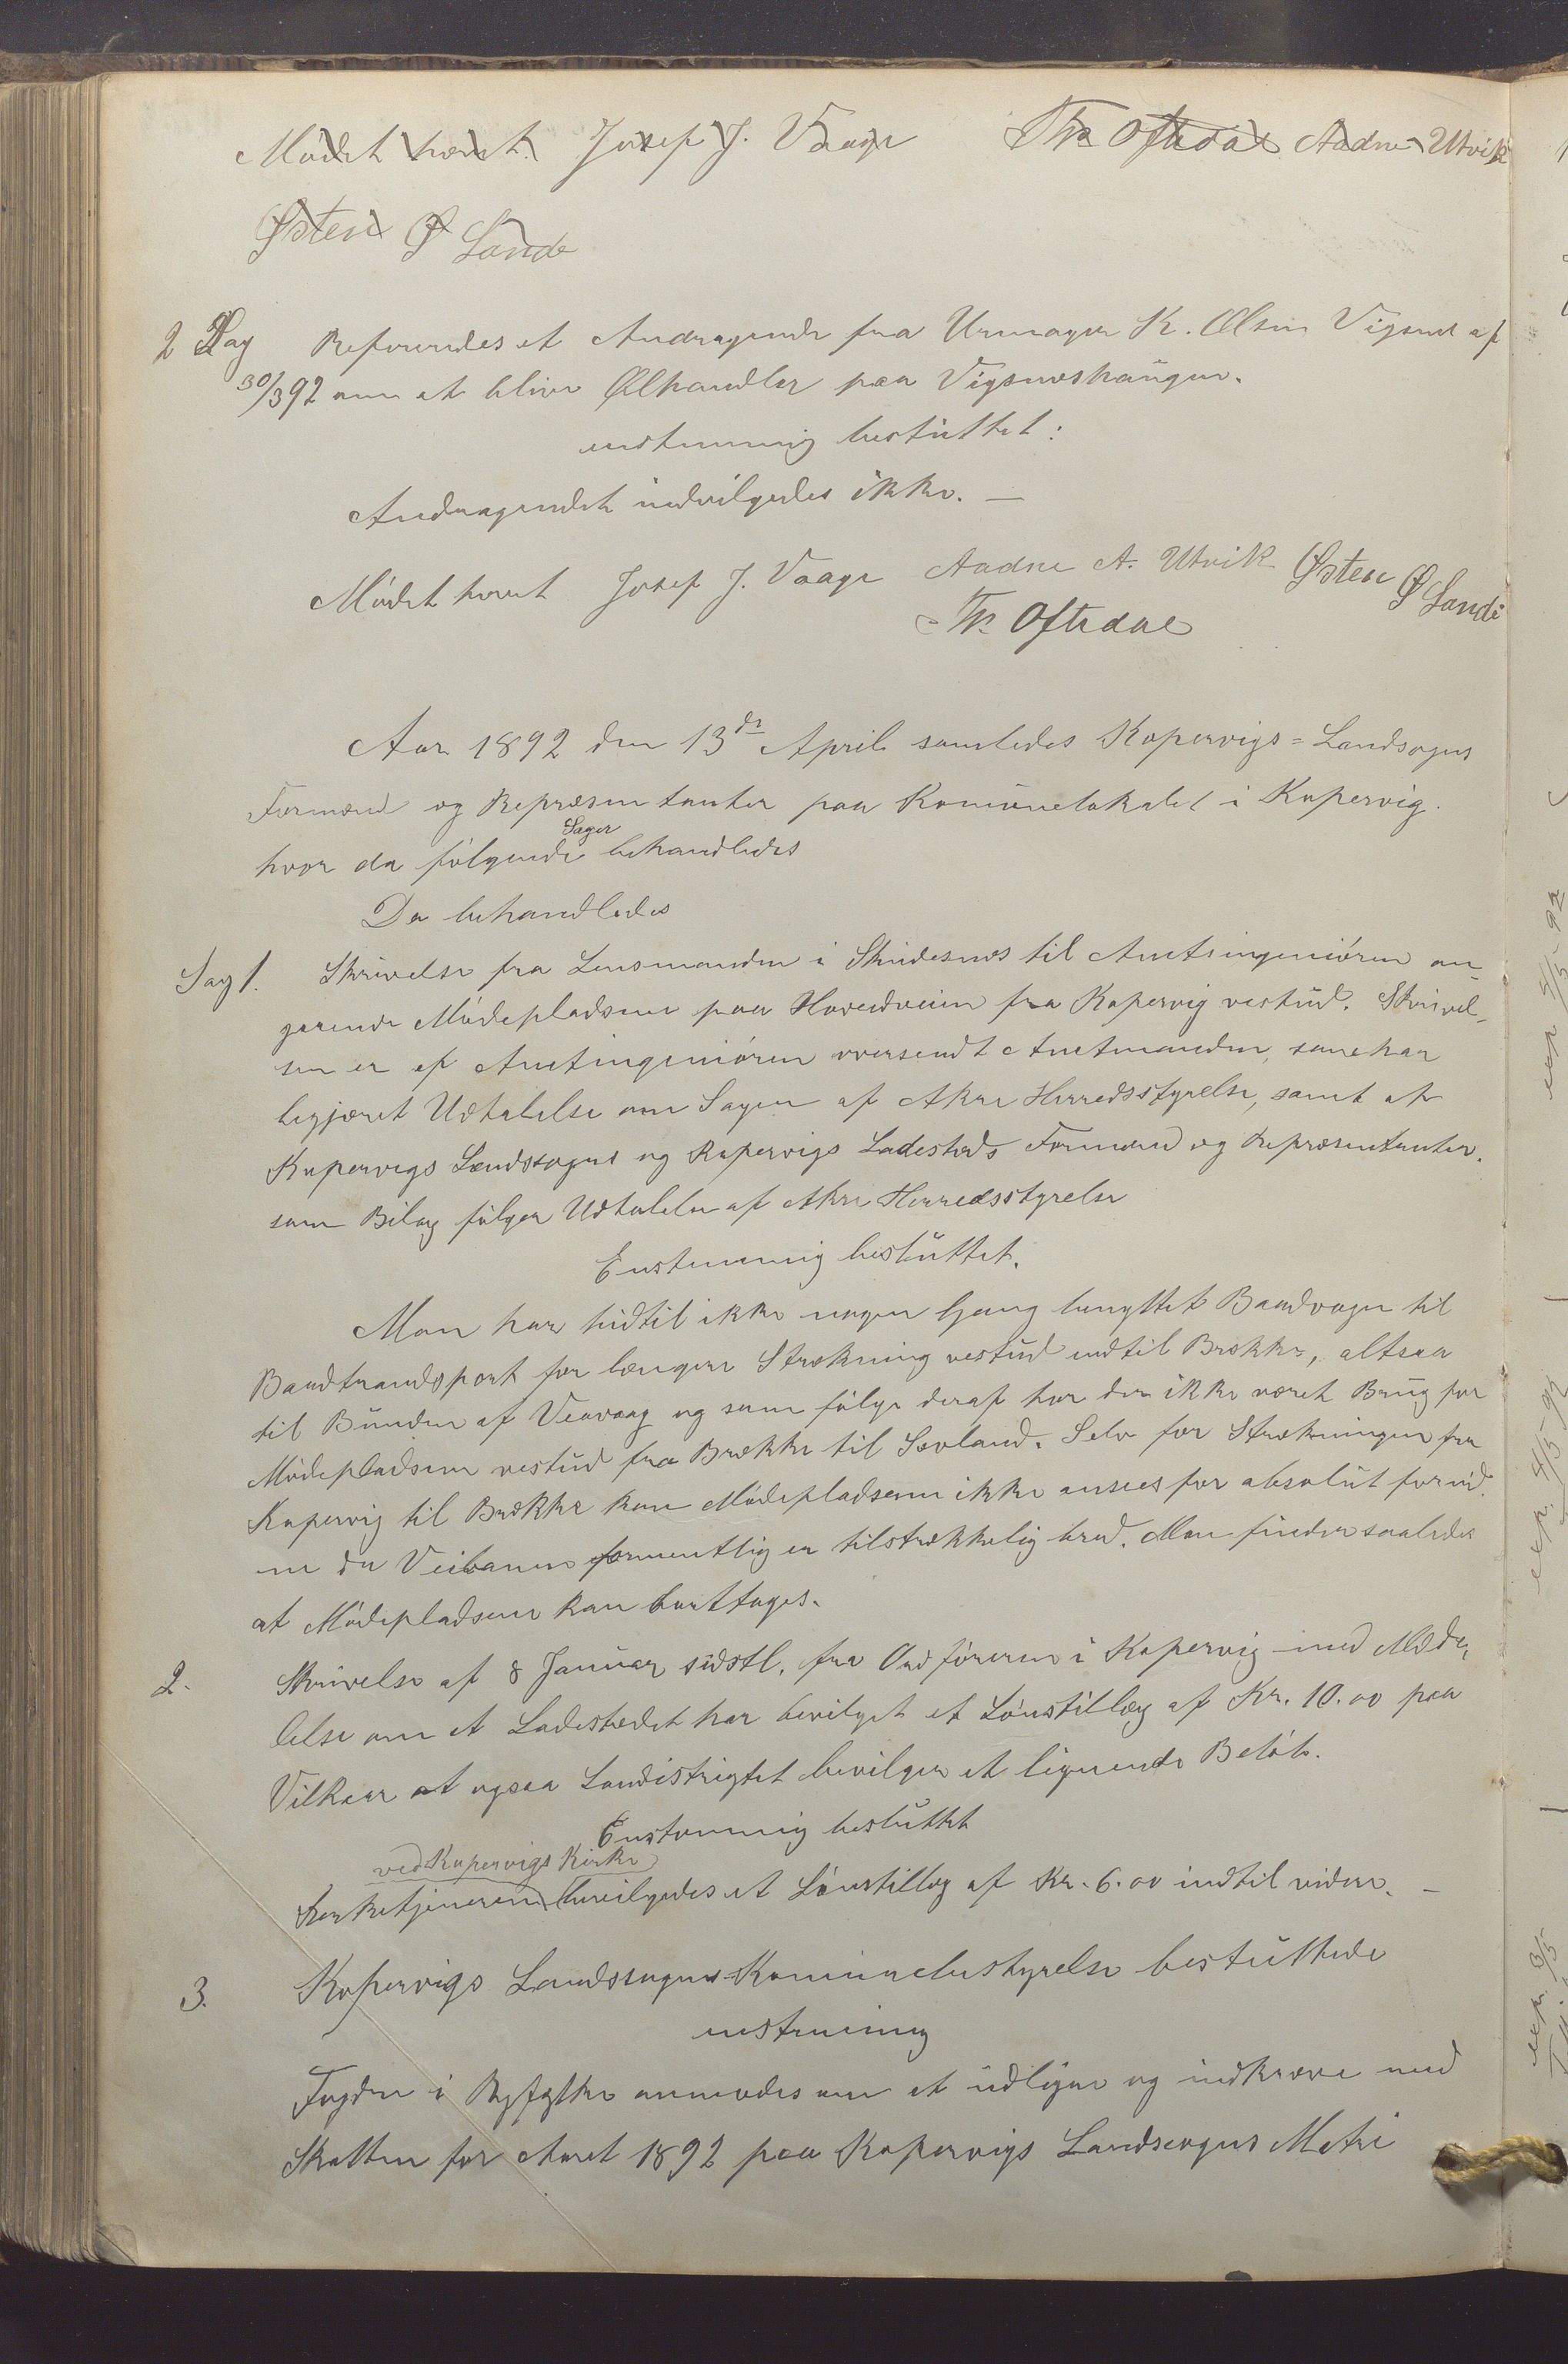 Mødet hævet. Josef J. Vaage Th. Oftedal Aadne Utvik
Østen Ø Sande
2 Sag Refereredes et Andragende fra Urmager K. Olsen Vigsnes af
30/3 92 om at blive Ølhandler paa Vigsneshaugen.
enstemmig besluttet:
Andragendet indvilgedes ikke. —
Mødet hævet Josef J. Vaage Aadne A. Utvik Østen Ø Sande
Th. Oftedal
Aar 1892 den 13de April samledes Kopervigs=Landsogns
Formænd og Repræsentanter paa Komunelokalet i Kopervig.
Sager
hvor da følgende behandledes
Da behandledes
Sag 1. Skrivelse fra Lensmanden i Skudesnes til Amtsingeniøren an-
gaaende Mødepladsene paa Hovedveien fra Kopervig vestud. Skrivel-
sen er af Amtingeniøren oversendt Amtmanden, som har
begjæret Udtalelse om Sagen af Akre Herredsstyrelse, samt af
Kopervigs Landssogns og Kopervigs Ladesteds Formænd og Repræsentanter.
som Bilag følger Udtalelse af Akre Herredsstyrelse
Enstemmig besluttet.
Man har hidtil ikke nogen Gang benyttet Baadvogn til
Baadtransport for længere Strækning vestud end til Brekke, altsaa
til Bunden af Veavaag og som følge deraf har der ikke været Brug for
Mødepladsene vestud fra Brekke til Sevland. Selv for Strækningen fra
Kopervig til Brekke kan Mødepladsene ikke ansees for absolut fornød.
ne da Veibanen formentlig er tilstrækkelig bred. Man finder saaledes
at Mødepladsene kan borttages.
2. Skrivelse af 8 Januar sidstl. fra Ordføreren i Kopervig med Medde,
lelse om at Ladestedet har bevilget et Lønstillæg af Kr. 10.00 paa
Vilkaar at ogsaa Landistrigtet bevilger et lignende Beløb.
Enstemmig besluttet
ved Kopervigs Kirke
Kirketjeneren bevilgedes et Lønstillæg af Kr. 6.00 indtil videre. —
3. Kopervigs Landssogns Komunebestyrelse besluttede
enstemmig
Fogden i Ryfylke anmodes om at udligne og indkræve med
Skatten for Aaret 1892 paa Kopervigs Landsogns Matri